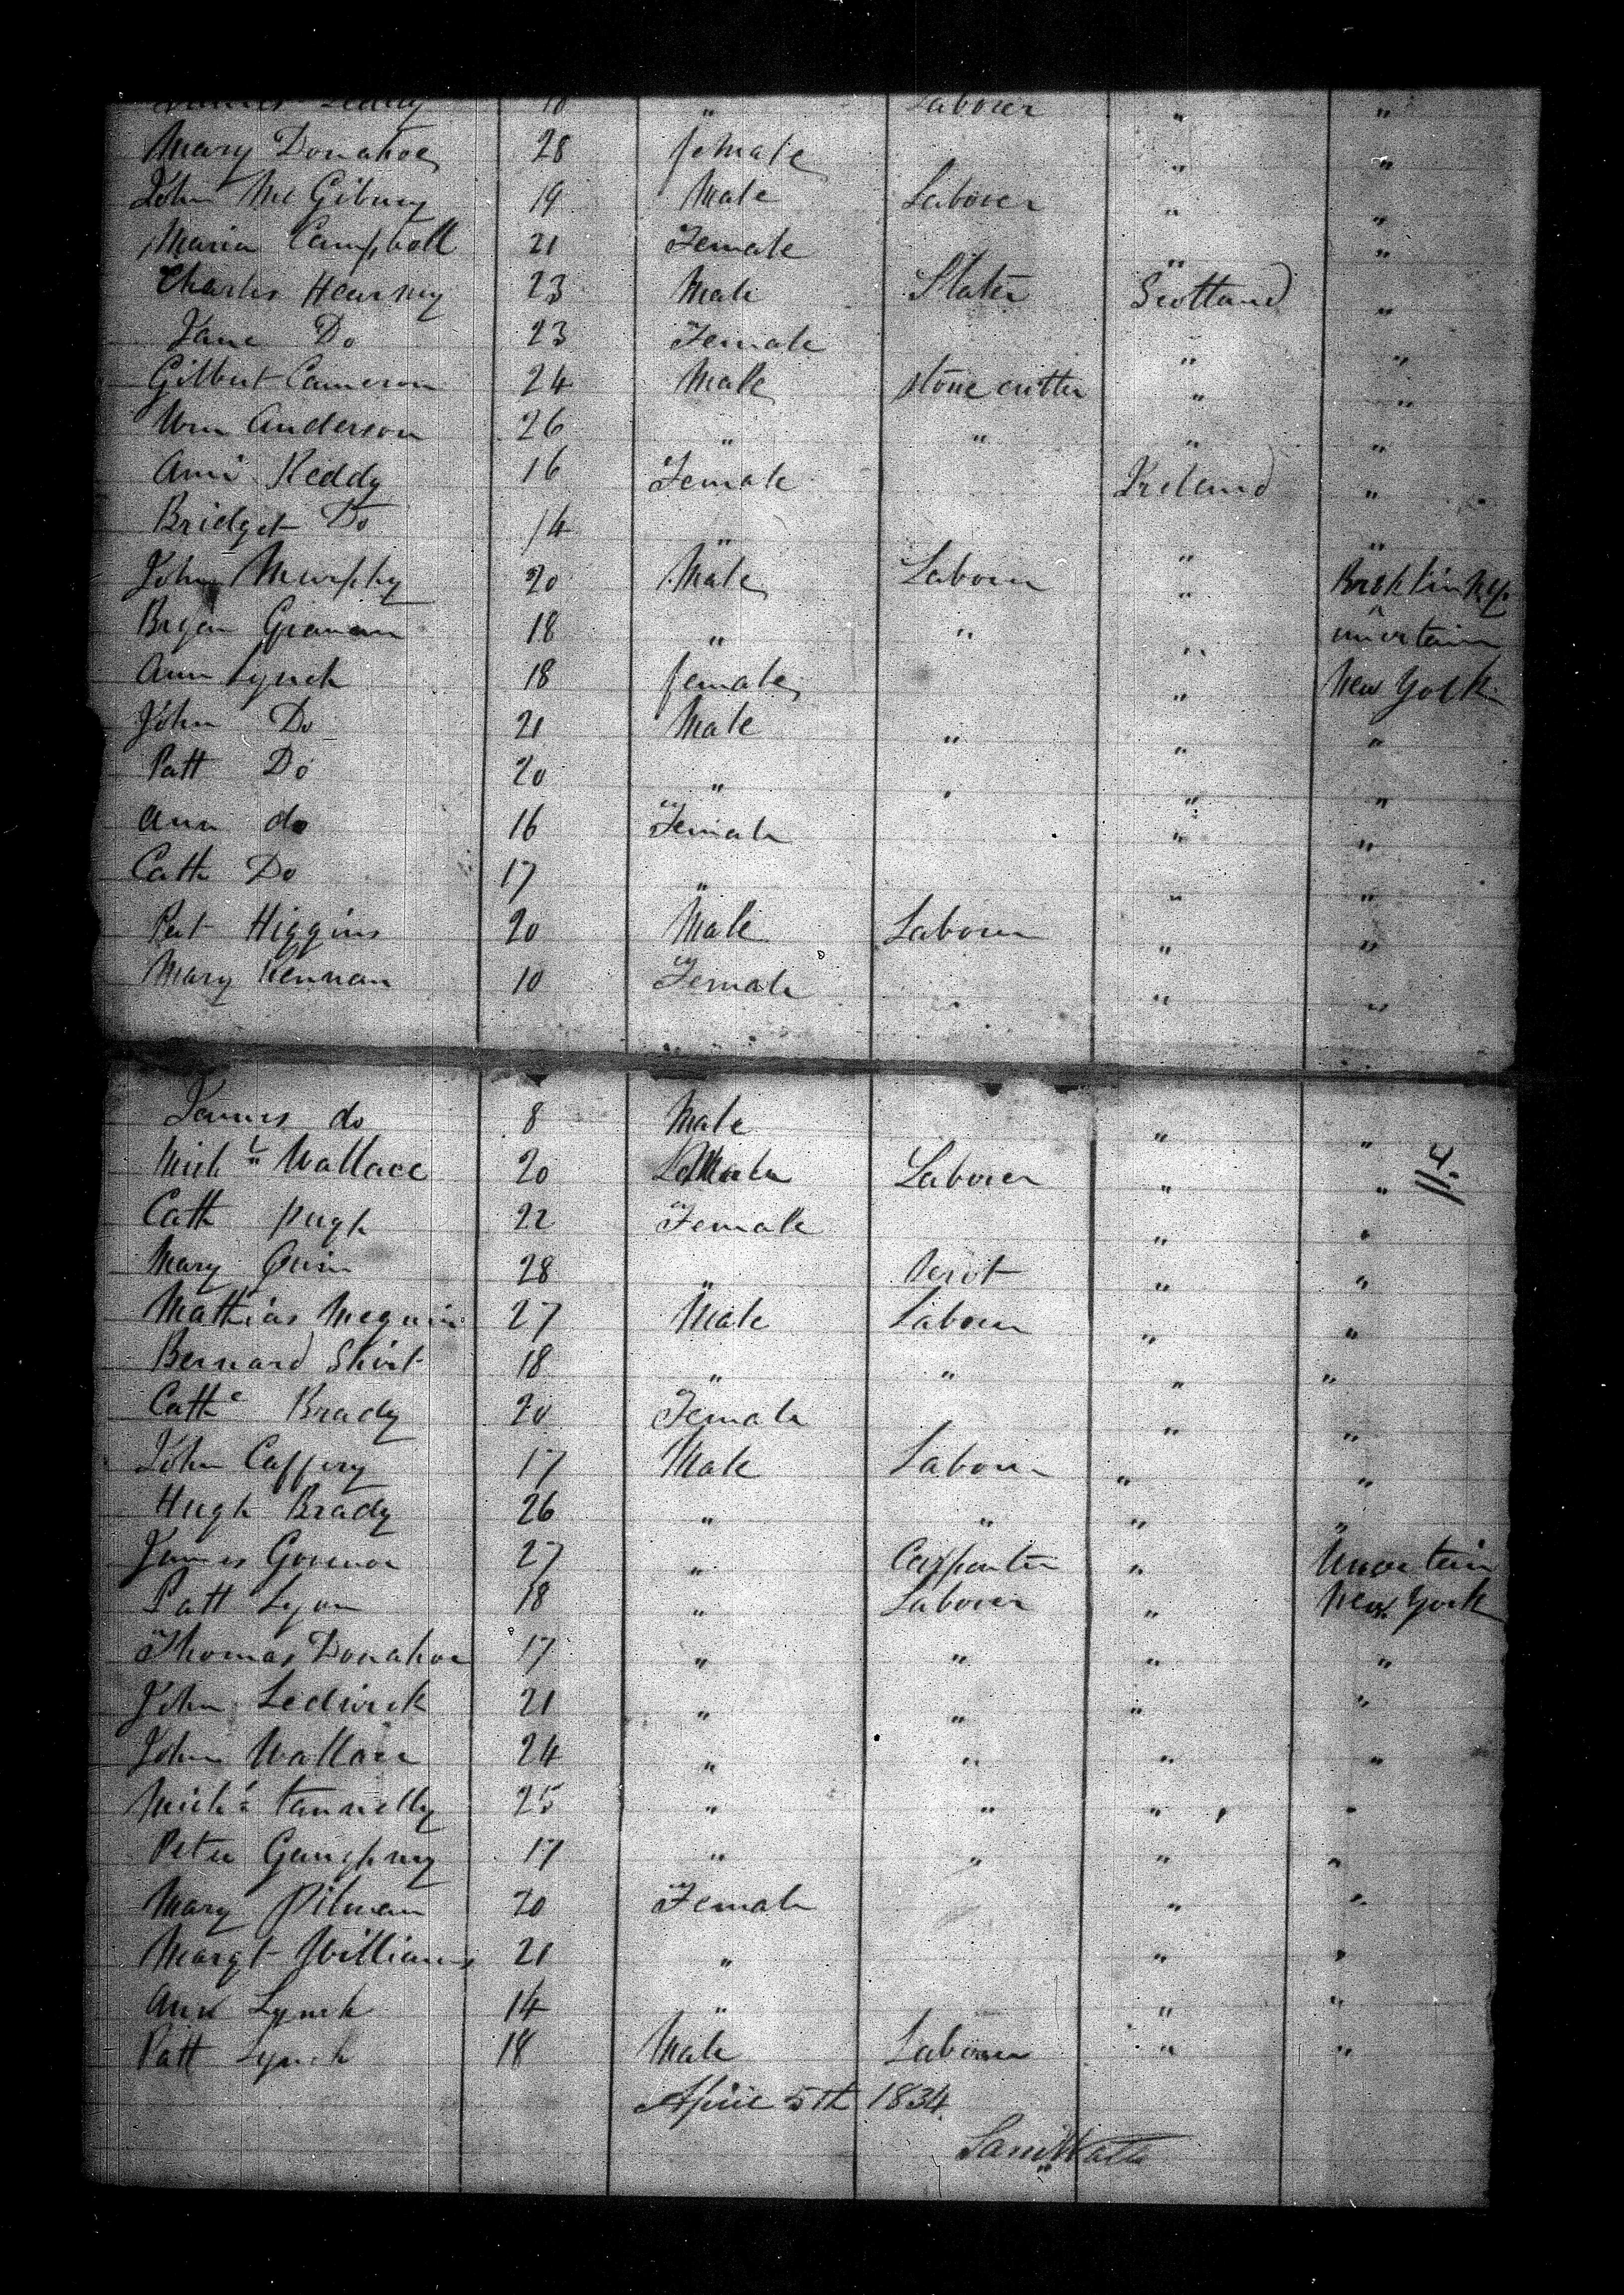 Leddy 18 " Labourer " "
Mary Donahoe 28 female " "
John McGibney 19 Male Labourer " "
Maria Campbell 21 Female " "
Charles Hearney 23 Male Slater Scotland "
Jane Do 23 Female " "
Gilbert Cameron 24 Male stone cutter " "
Wm Anderson 26 " " " "
Ann Reddy 16 Female Ireland "
Bridget Do 14 " " "
John Murphy 20 Male Labourer " Brooklin
Bryan 18 " " " uncertain
Ann Lynch 18 female " New York
John Do 21 Male " " "
Patt Do 20 " " " "
Ann do 16 Female " "
Cath Do 17 " " "
Pat Higgins 20 Male Labourer " "
Mary Kennan 10 Female " "
James do 8 Male " "
Michl Wallace 20 Labourer " "
Cath pugh 22 Female " "
Mary Quin 28 " " "
Mathias 27 Male Labourer " "
Bernard 18 " " " "
Cathe Brady 20 Female " "
John Caffery 17 Male Labourer " "
Hugh Brady 26 " " " "
James 27 " Carpenter " Uncertain
Patt Lyon 18 " Labourer " New York
Thomas Donahoe 17 " " " "
John Ledwick 21 " " " "
John Wallace 24 " " " "
Michl 25 " " " "
Peter 17 " " " "
Mary 20 Female " "
Margt Williams 21 " " "
Ann Lynch 14 " " "
Patt Lynch 18 Male Labourer " "
April 5th 1834